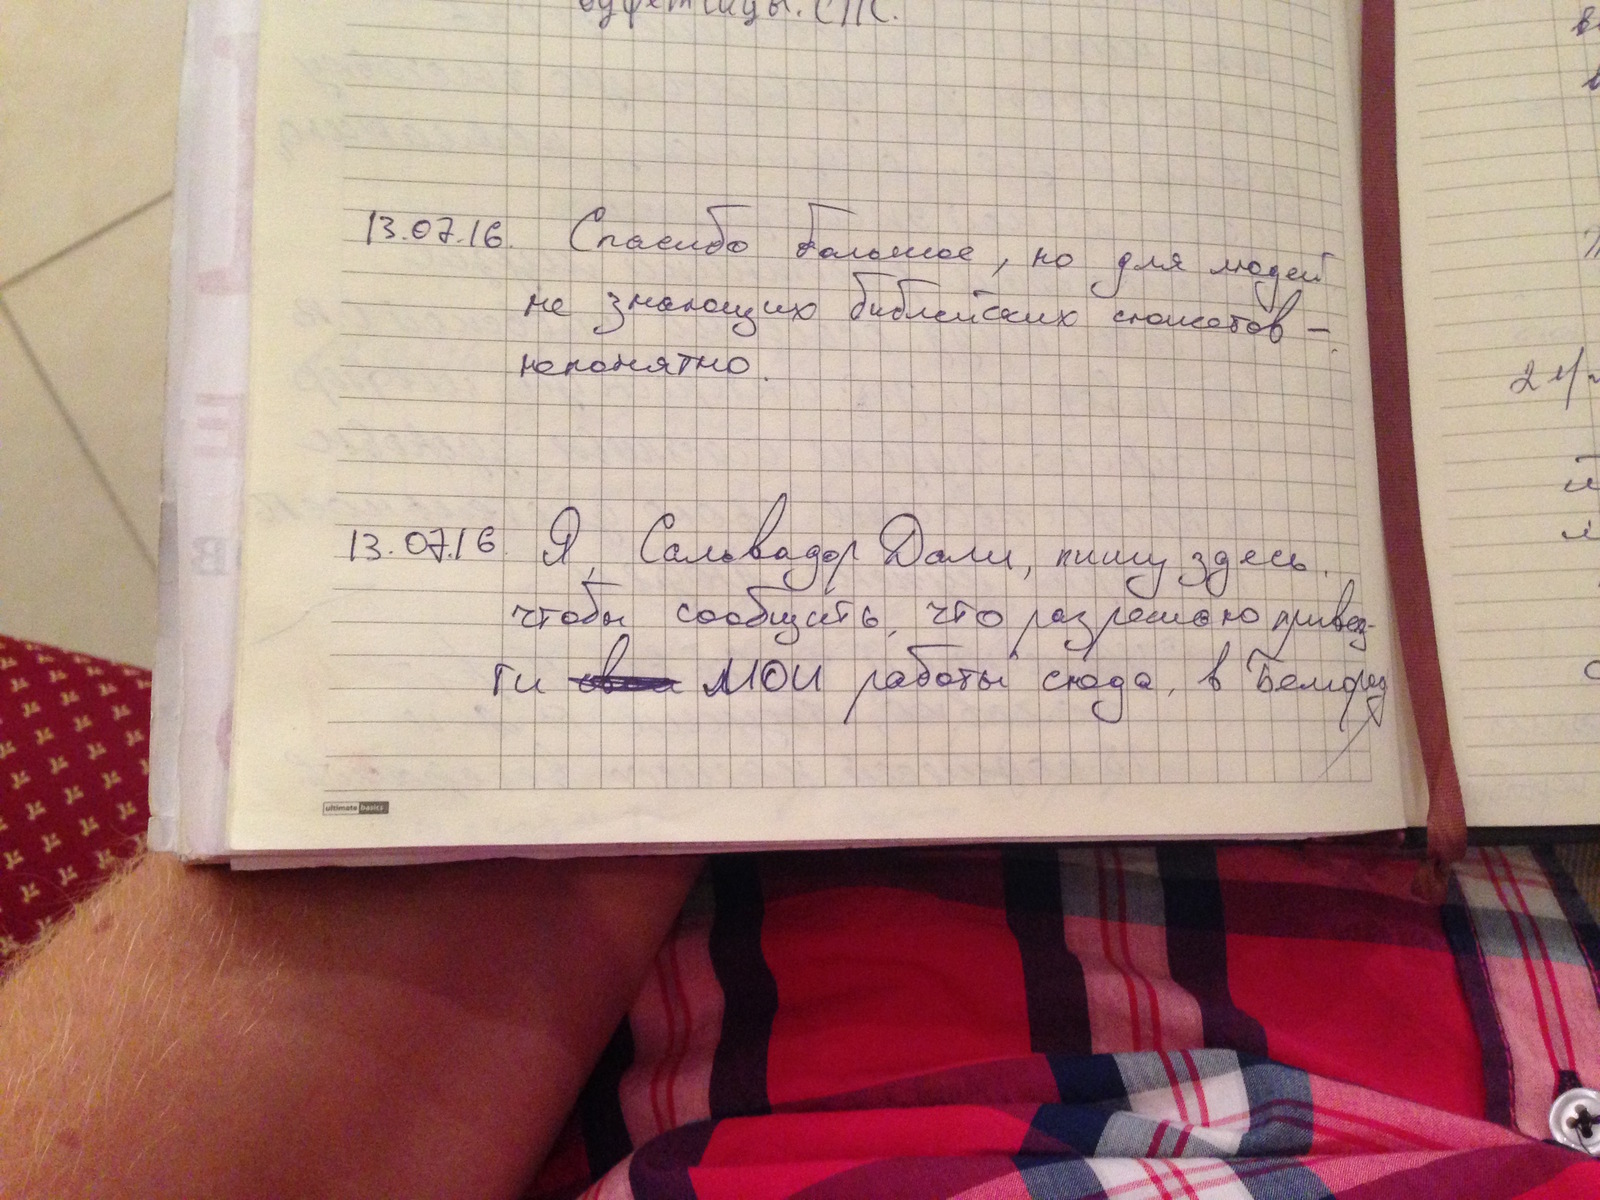 13.07.16. Спасибо большое, но для людей
не знающих библейских сюжетов –
непонятно.
13.07.16 Я, Сальвадор Дали, пишу здесь,
чтобы сообщить, что разрешаю привез-
ти МОИ работы сюда, в Белгород
ultimate basics